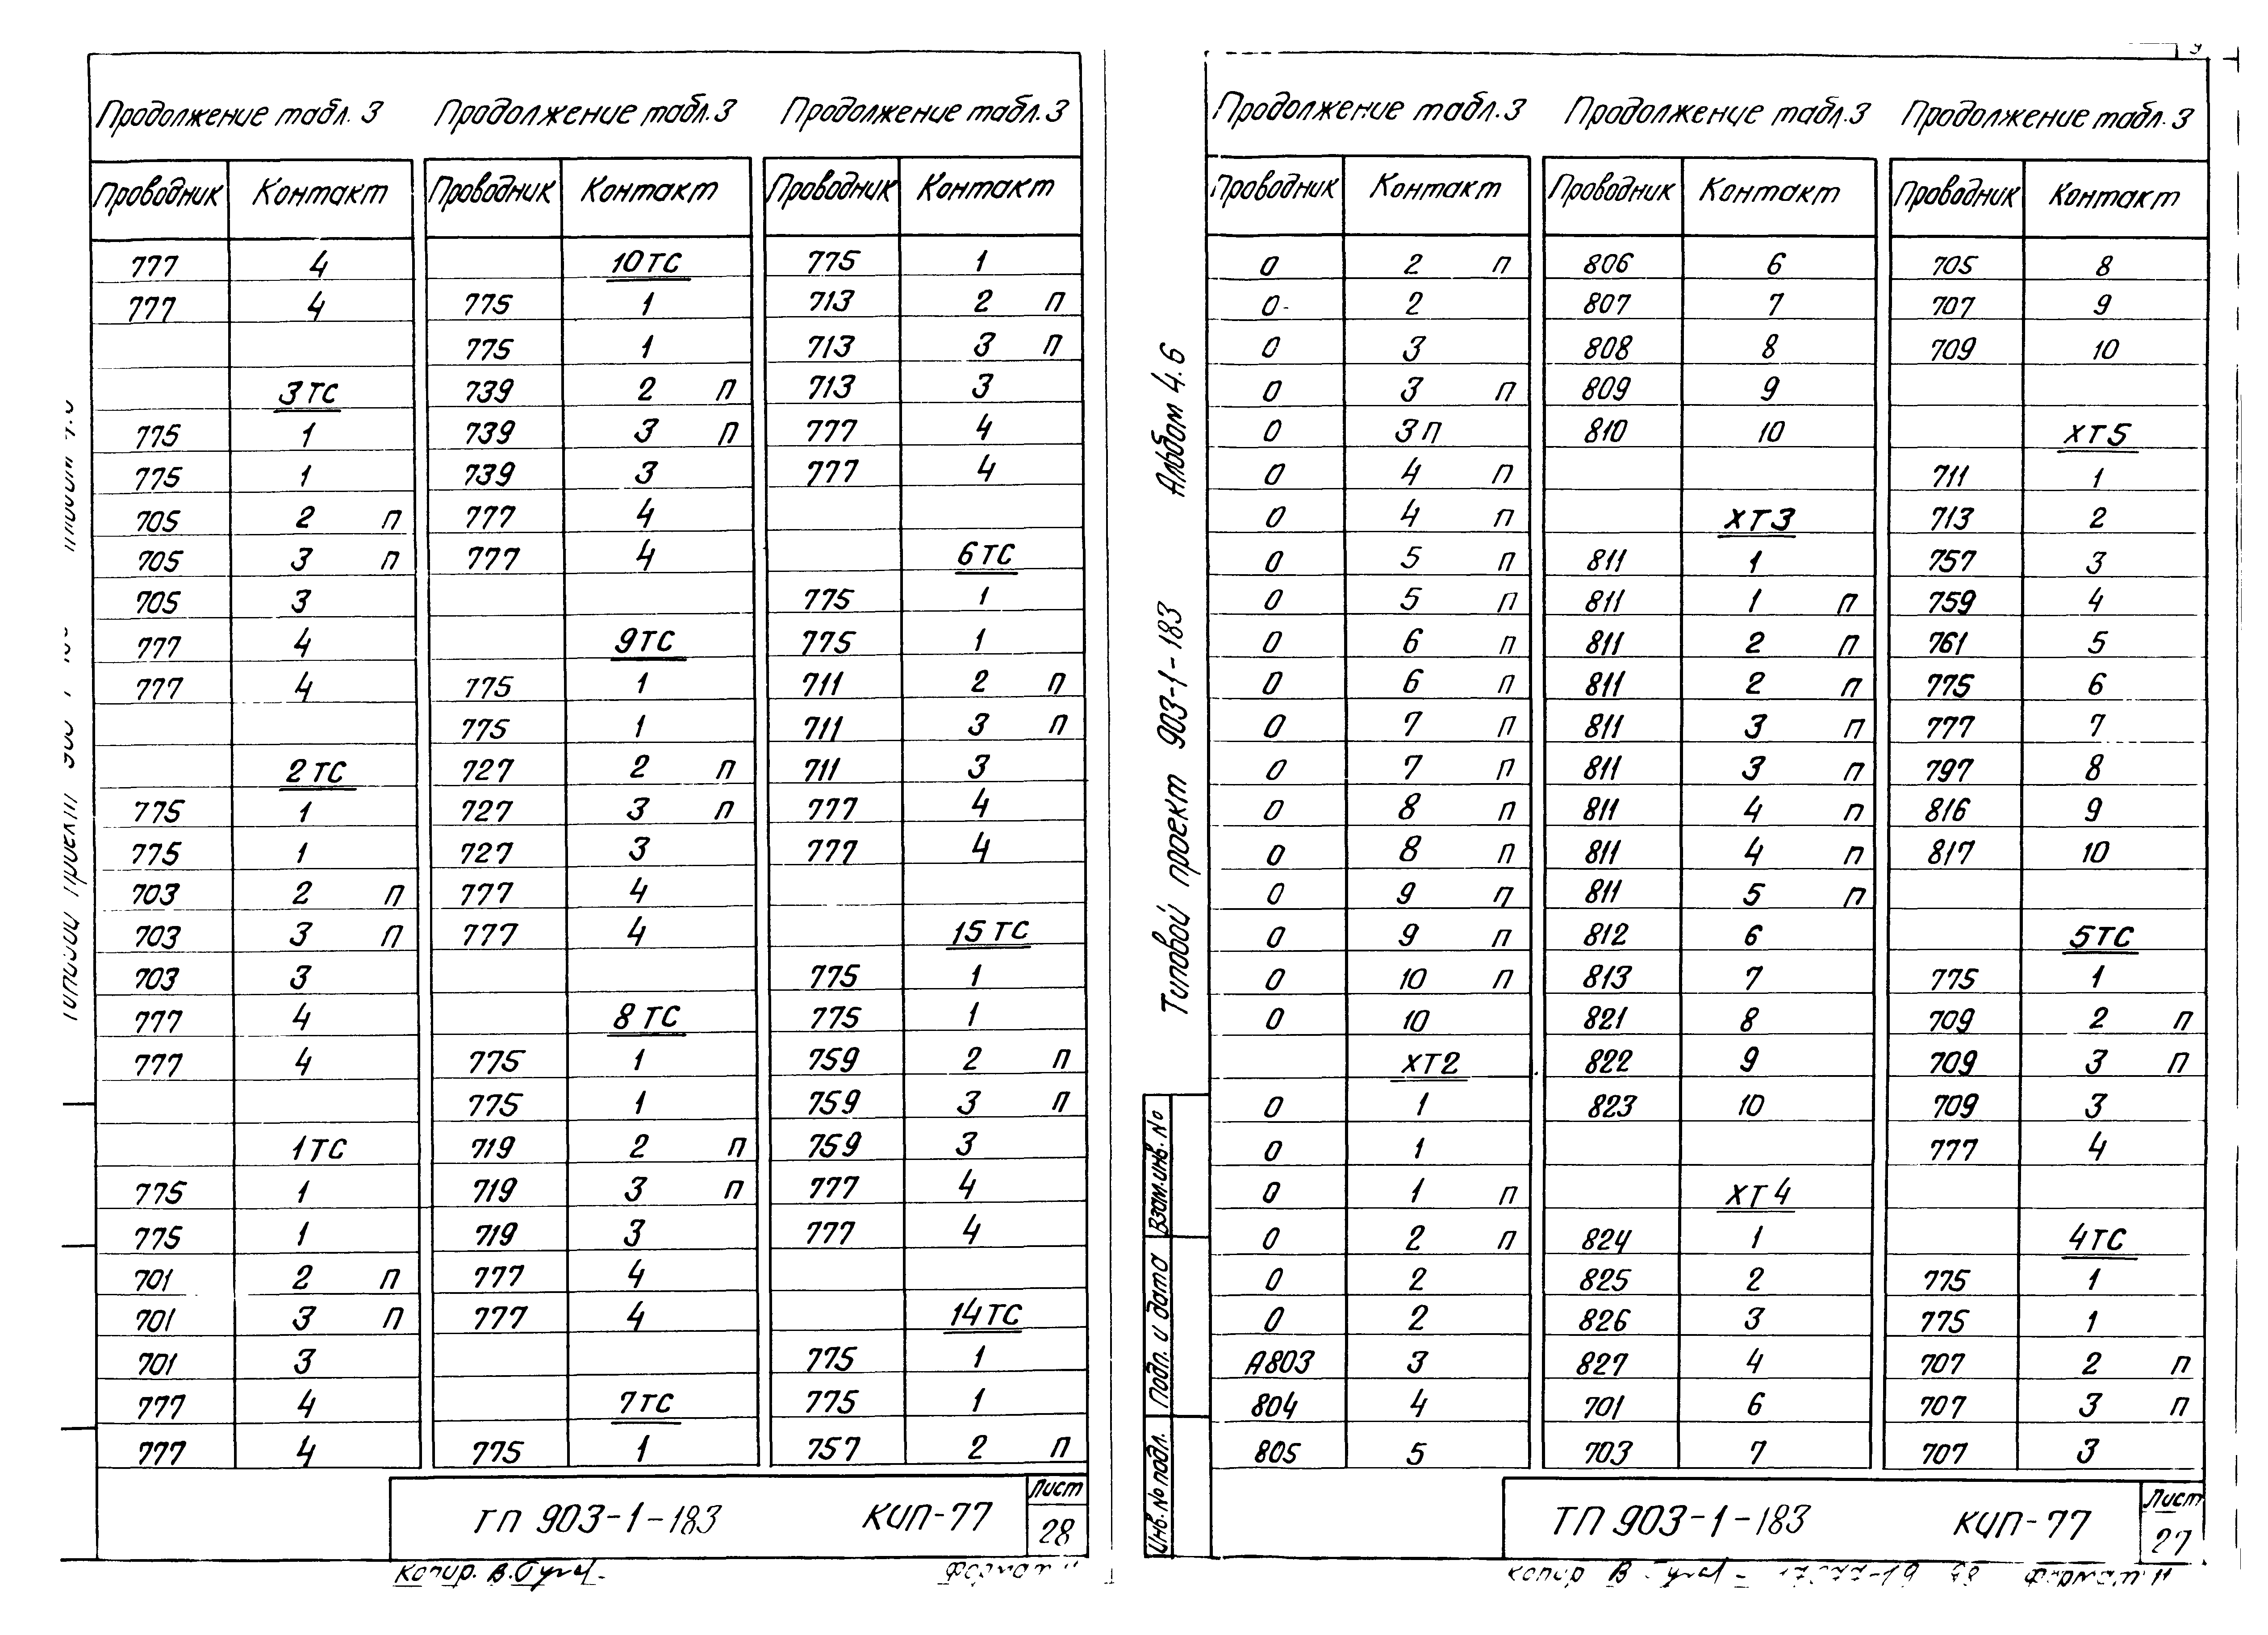 Продолжение табл. 3 Продолжение табл. 3 Продолжение табл. 3
Проводник Контакт Проводник Контакт Проводник Контакт
777 4 10ТС 775 1
777 4 775 1 713 2 п
775 1 713 3 п
3ТС 739 2 п 713 3
775 1 739 3 п 777 4
775 1 739 3 777 4
705 2 п 777 4
705 3 п 777 4 6ТС
705 3 775 1
777 4 9ТС 775 1
777 4 775 1 711 2 п
775 1 711 3 п
2ТС 727 2 п 711 3
775 1 727 3 п 777 4
775 1 727 3 777 4
703 2 п 777 4
703 3 п 777 4 15ТС
703 3 775 1
777 4 8ТС 775 1
777 4 775 1 759 2 п
775 1 759 3 п
1ТС 719 2 п 759 3
775 1 719 3 п 777 4
775 1 719 3 777 4
701 2 п 777 4
701 3 п 777 4 14ТС
701 3 775 1
777 4 7ТС 775 1
777 4 775 1 757 2 п
ТП 903-1-183 КИП-77 Лист 28
Копир. В.
Формат
Альбом 4.6
Типовой проект 903-1-183
Взам.инв.№
Подп. и дата
Инв.№ подл.
Продолжение табл.3 Продолжение табл.3 Продолжение табл.3
Проводник Контакт Проводник Контакт Проводник Контакт
0 2 п 806 6 705 8
0 2 807 7 707 9
0 3 808 8 709 10
0 3 п 809 9
0 3п 810 10 ХТ5
0 4 п 711 1
0 4 п ХТ3 713 2
0 5 п 811 1 757 3
0 5 п 811 1 п 759 4
0 6 п 811 2 п 761 5
0 6 п 811 2 п 775 6
0 7 п 811 3 п 777 7
0 7 п 811 3 п 797 8
0 8 п 811 4 п 816 9
0 8 п 811 4 п 817 10
0 9 п 811 5 п
0 9 п 812 6 5ТС
0 10 п 813 7 775 1
0 10 821 8 709 2 п
ХТ2 822 9 709 3 п
0 1 823 10 709 3
0 1 777 4
0 1 п ХТ4
0 2 п 824 1 4ТС
0 2 825 2 775 1
0 2 826 3 775 1
А803 3 827 4 707 2 п
804 4 701 6 707 3 п
805 5 703 7 707 3
ТП 903-1-183 КИП-77 Лист 27
Копир В
Формат 11